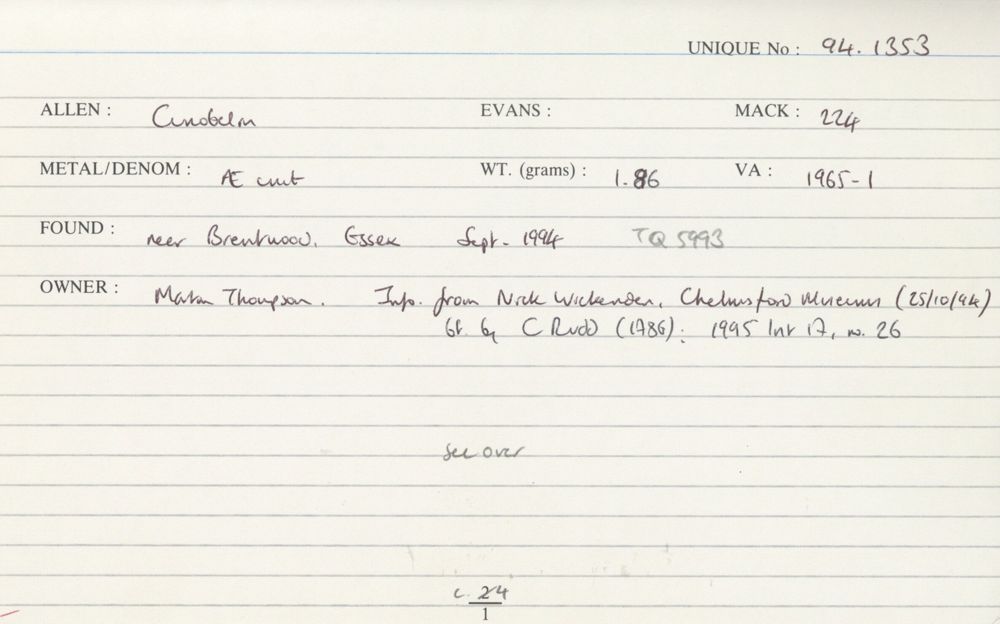 UNIQUE No : 94.1353
ALLEN : Cunobelin EVANS : MACK : 224
METAL/DENOM : Æ unit WT. (grams) : 1.86 VA : 1965-1
FOUND : near Brentwood, Essex Sept. 1994 TQ 5993
OWNER : Thompson. Info. from Nick Wickenden, Chelmsford Museum (25/10/94)
bt. by C Rudd (1786); 1995 list 17, no. 26
see over
c. 24
1